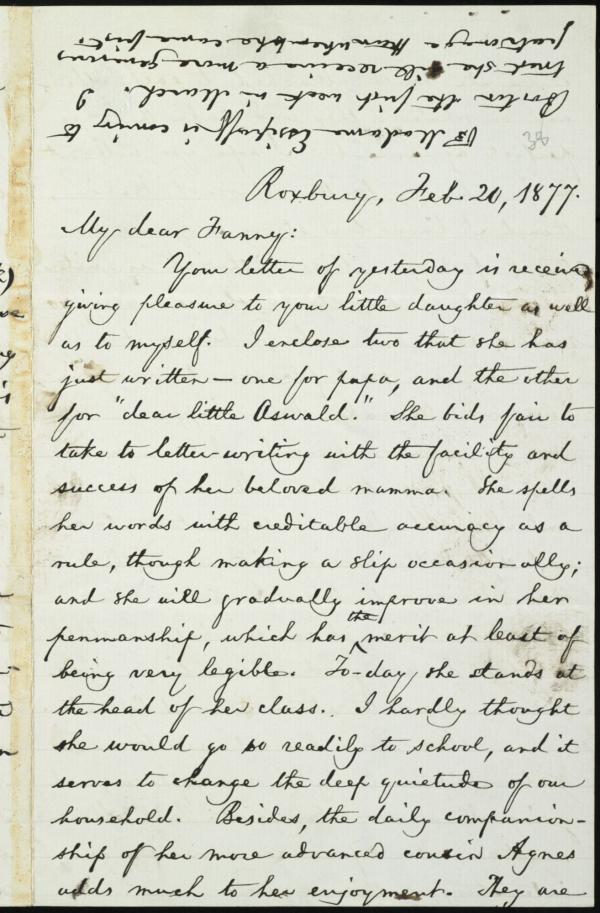 Madame Essipoff is coming to
Boston the first week in March. I
trust she will receive a more generous
patronage than when she came first.
Roxbury, Feb. 20, 1877.
My dear Fanny:
Your letter of yesterday is received,
giving pleasure to your little daughter as well
as to myself. I enclose two that she has
just written — one for papa, and the other
for "dear little Oswald." She bids fair to
take to letter-writing with the facility and
success of her beloved mamma. She spells
her words with creditable accuracy as a
rule, though making a slip occasionally;
and she will gradually improve in her
penmanship, which has the merit at least of
being very legible. To-day she stands at
the head of her class. I hardly thought
she would go so readily to school, and it
serves to change the deep quietude of our
household. Besides, the daily companion-
ship of her more advanced cousin Agnes
adds much to her enjoyment. They are